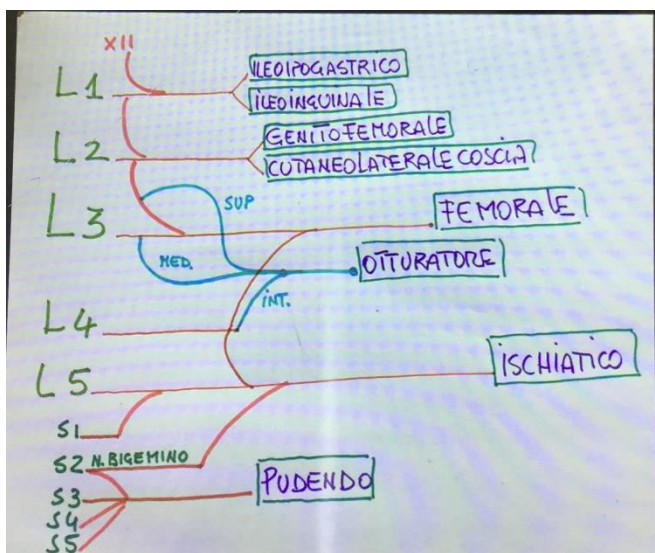 XII
L1
ILEOIPOGASTRICO
ILEOINGUINALE
L2
GENITOFEMORALE
CUTANEOLATERALE COSCIA
L3
SUP
FEMORALE
MED.
OTTURATORE
INT.
L4
L5
ISCHIATICO
S1
S2 N.BIGEMINO
S3
PUDENDO
S4
S5